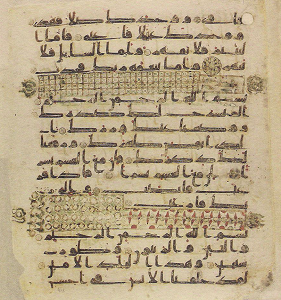 فاوى ووجدك ضلا فهدى
ووجدك عئلا فاغنى فاما ا
ليتيم فلا تقهر واما السئل فلا
تنهر واما بنعمة ربك فحدث
بسم الله الرحمن الرحيم
الم نشرح لك صدرك
ووضعنا عنك وزرك ا
لذي انقض ظهرك ورفعنا
لك ذكرك فان مع العسر يسر
ا ان مع العسر يسرا فاذا
فرغت فانصب والى ر
بك فارغب
بسم الله الرحمن الرحيم
والتين والزيتون وطور
سينين وهذا البلد الامين
لقد خلقنا الانسن في احسن